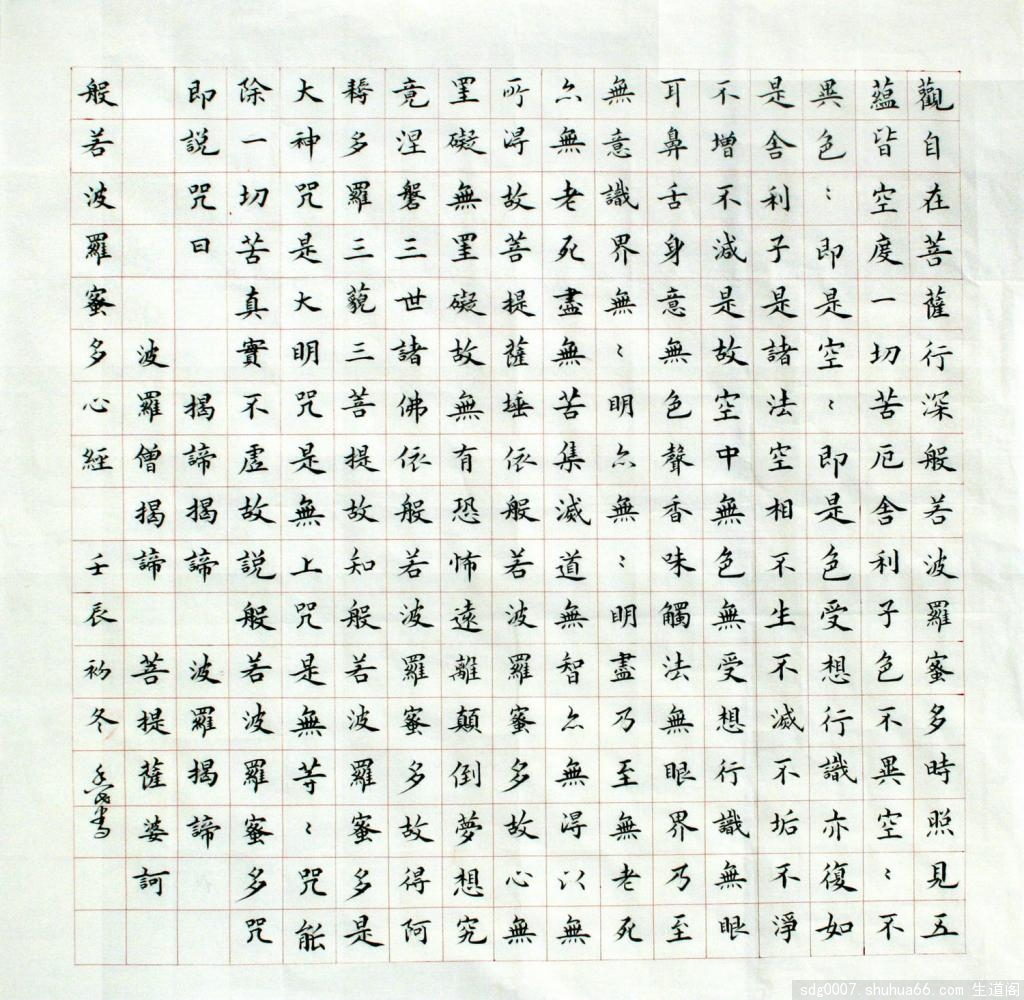 觀自在菩薩行深般若波羅蜜多時照見五
蘊皆空度一切苦厄舍利子色不異空〻不
異色〻即是空〻即是色受想行識亦復如
是舍利子是諸法空相不生不滅不垢不淨
不增不減是故空中無色無受想行識無眼
耳鼻舌身意無色聲香味觸法無眼界乃至
無意識界無〻明亦無〻明盡乃至無老死
亦無老死盡無苦集滅道無智亦無得以無
所得故菩提薩埵依般若波羅蜜多故心無
罣礙無罣礙故無有恐怖遠離顛倒夢想究
竟涅磐三世諸佛依般若波羅蜜多故得阿
耨多羅三藐三菩提故知般若波羅蜜多是
大神咒是大明咒是無上咒是無等〻咒能
除一切苦真實不虛故說般若波羅蜜多咒
即說咒曰 揭諦揭諦 波羅揭諦
波羅僧揭諦 菩提薩婆訶
般若波羅蜜多心經 壬辰初冬 書
sdg0007.shuhua66.com 生道阁